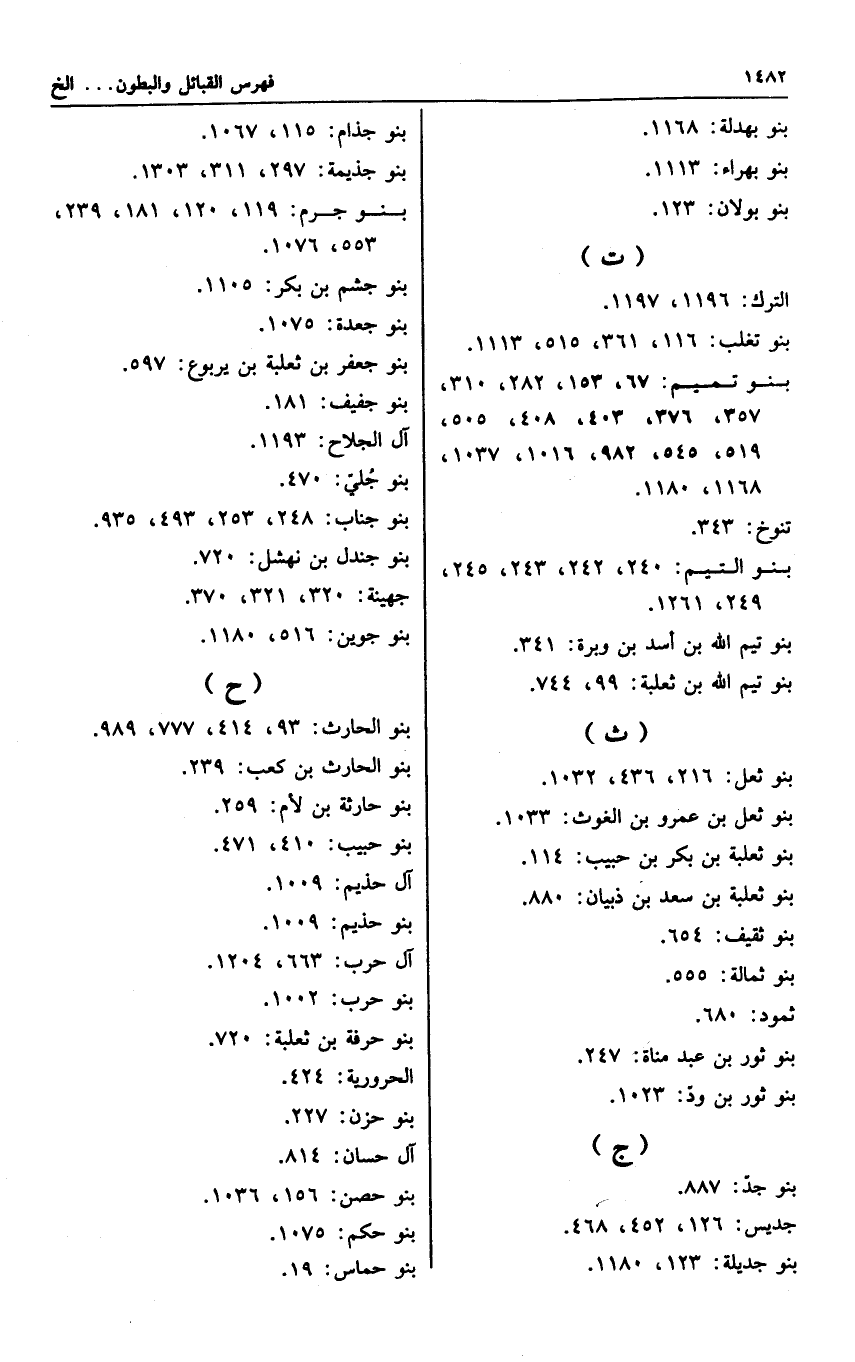 ١٤٨٢
فهرس القبائل والبطون... الخ
بنو بهدلة: ١١٦٨.
بنو بهراء: ١١١٣.
بنو بولان: ١٢٣.
( ت )
الترك: ١١٩٦، ١١٩٧.
بنو تغلب: ١١٦، ٣٦١، ٥١٥، ١١١٣.
بنو تميم: ٦٧، ١٥٣، ٢٨٢، ٣١٠،
٣٥٧، ٣٧٦، ٤٠٣، ٤٠٨، ٥٠٥،
٥١٩، ٥٤٥، ٩٨٢، ١٠١٦، ١٠٣٧،
١١٦٨، ١١٨٠.
تنوخ: ٣٤٣.
بنو التيم: ٢٤٠، ٢٤٢، ٢٤٣، ٢٤٥،
٢٤٩، ١٢٦١.
بنو تيم الله بن أسد بن وبرة: ٣٤١.
بنو تيم الله بن ثعلبة: ٩٩، ٧٤٤.
( ث )
بنو ثعل: ٢١٦، ٤٣٦، ١٠٣٢.
بنو ثعل بن عمرو بن الغوث: ١٠٣٣.
بنو ثعلبة بن بكر بن حبيب: ١١٤.
بنو ثعلبة بن سعد بن ذبيان: ٨٨٠.
بنو ثقيف: ٦٥٤.
بنو ثمالة: ٥٥٥.
ثمود: ٦٨٠.
بنو ثور بن عبد مناة: ٢٤٧.
بنو ثور بن ودّ: ١٠٢٣.
( ج )
بنو جدّ: ٨٨٧.
جديس: ١٢٦، ٤٥٢، ٤٦٨.
بنو جديلة: ١٢٣، ١١٨٠.
بنو جذام: ١١٥، ١٠٦٧.
بنو جذيمة: ٢٩٧، ٣١١، ١٣٠٣.
بنو جرم: ١١٩، ١٢٠، ١٨١، ٢٣٩،
٥٥٣، ١٠٧٦.
بنو جشم بن بكر: ١١٠٥.
بنو جعدة: ١٠٧٥.
بنو جعفر بن ثعلبة بن يربوع: ٥٩٧.
بنو جفيف: ١٨١.
آل الجلاح: ١١٩٣.
بنو جُليّ: ٤٧٠.
بنو جناب: ٢٤٨، ٢٥٣، ٤٩٣، ٩٣٥.
بنو جندل بن نهشل: ٧٢٠.
جهينة: ٣٢٠، ٣٢١، ٣٧٠.
بنو جوين: ٥١٦، ١١٨٠.
( ح )
بنو الحارث: ٩٣، ٤١٤، ٧٧٧، ٩٨٩.
بنو الحارث بن كعب: ٢٣٩.
بنو حارثة بن لأم: ٢٥٩.
بنو حبيب: ٤١٠، ٤٧١.
آل حذيم: ١٠٠٩.
بنو حذيم: ١٠٠٩.
آل حرب: ٦٦٣، ١٢٠٤.
بنو حرب: ١٠٠٢.
بنو حرفة بن ثعلبة: ٧٢٠.
الحرورية: ٤٢٤.
بنو حزن: ٢٢٧.
آل حسان: ٨١٤.
بنو حصن: ١٥٦، ١٠٣٦.
بنو حكم: ١٠٧٥.
بنو حماس: ١٩.